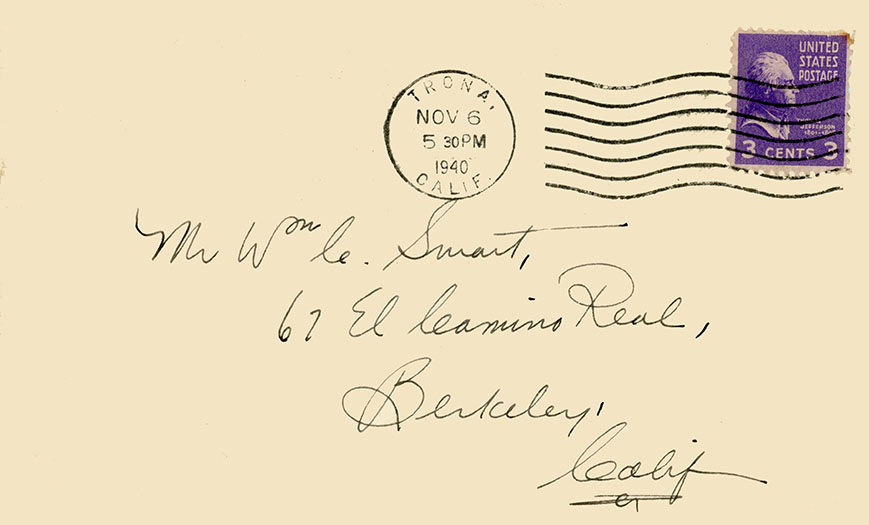 TRONA,
NOV 6
5 30 PM
1940
CALIF.
UNITED
STATES
POSTAGE
JEFFERSON
3 CENTS 3
Mr Wm C. Smart,
67 El Camino Real,
Berkeley,
Calif